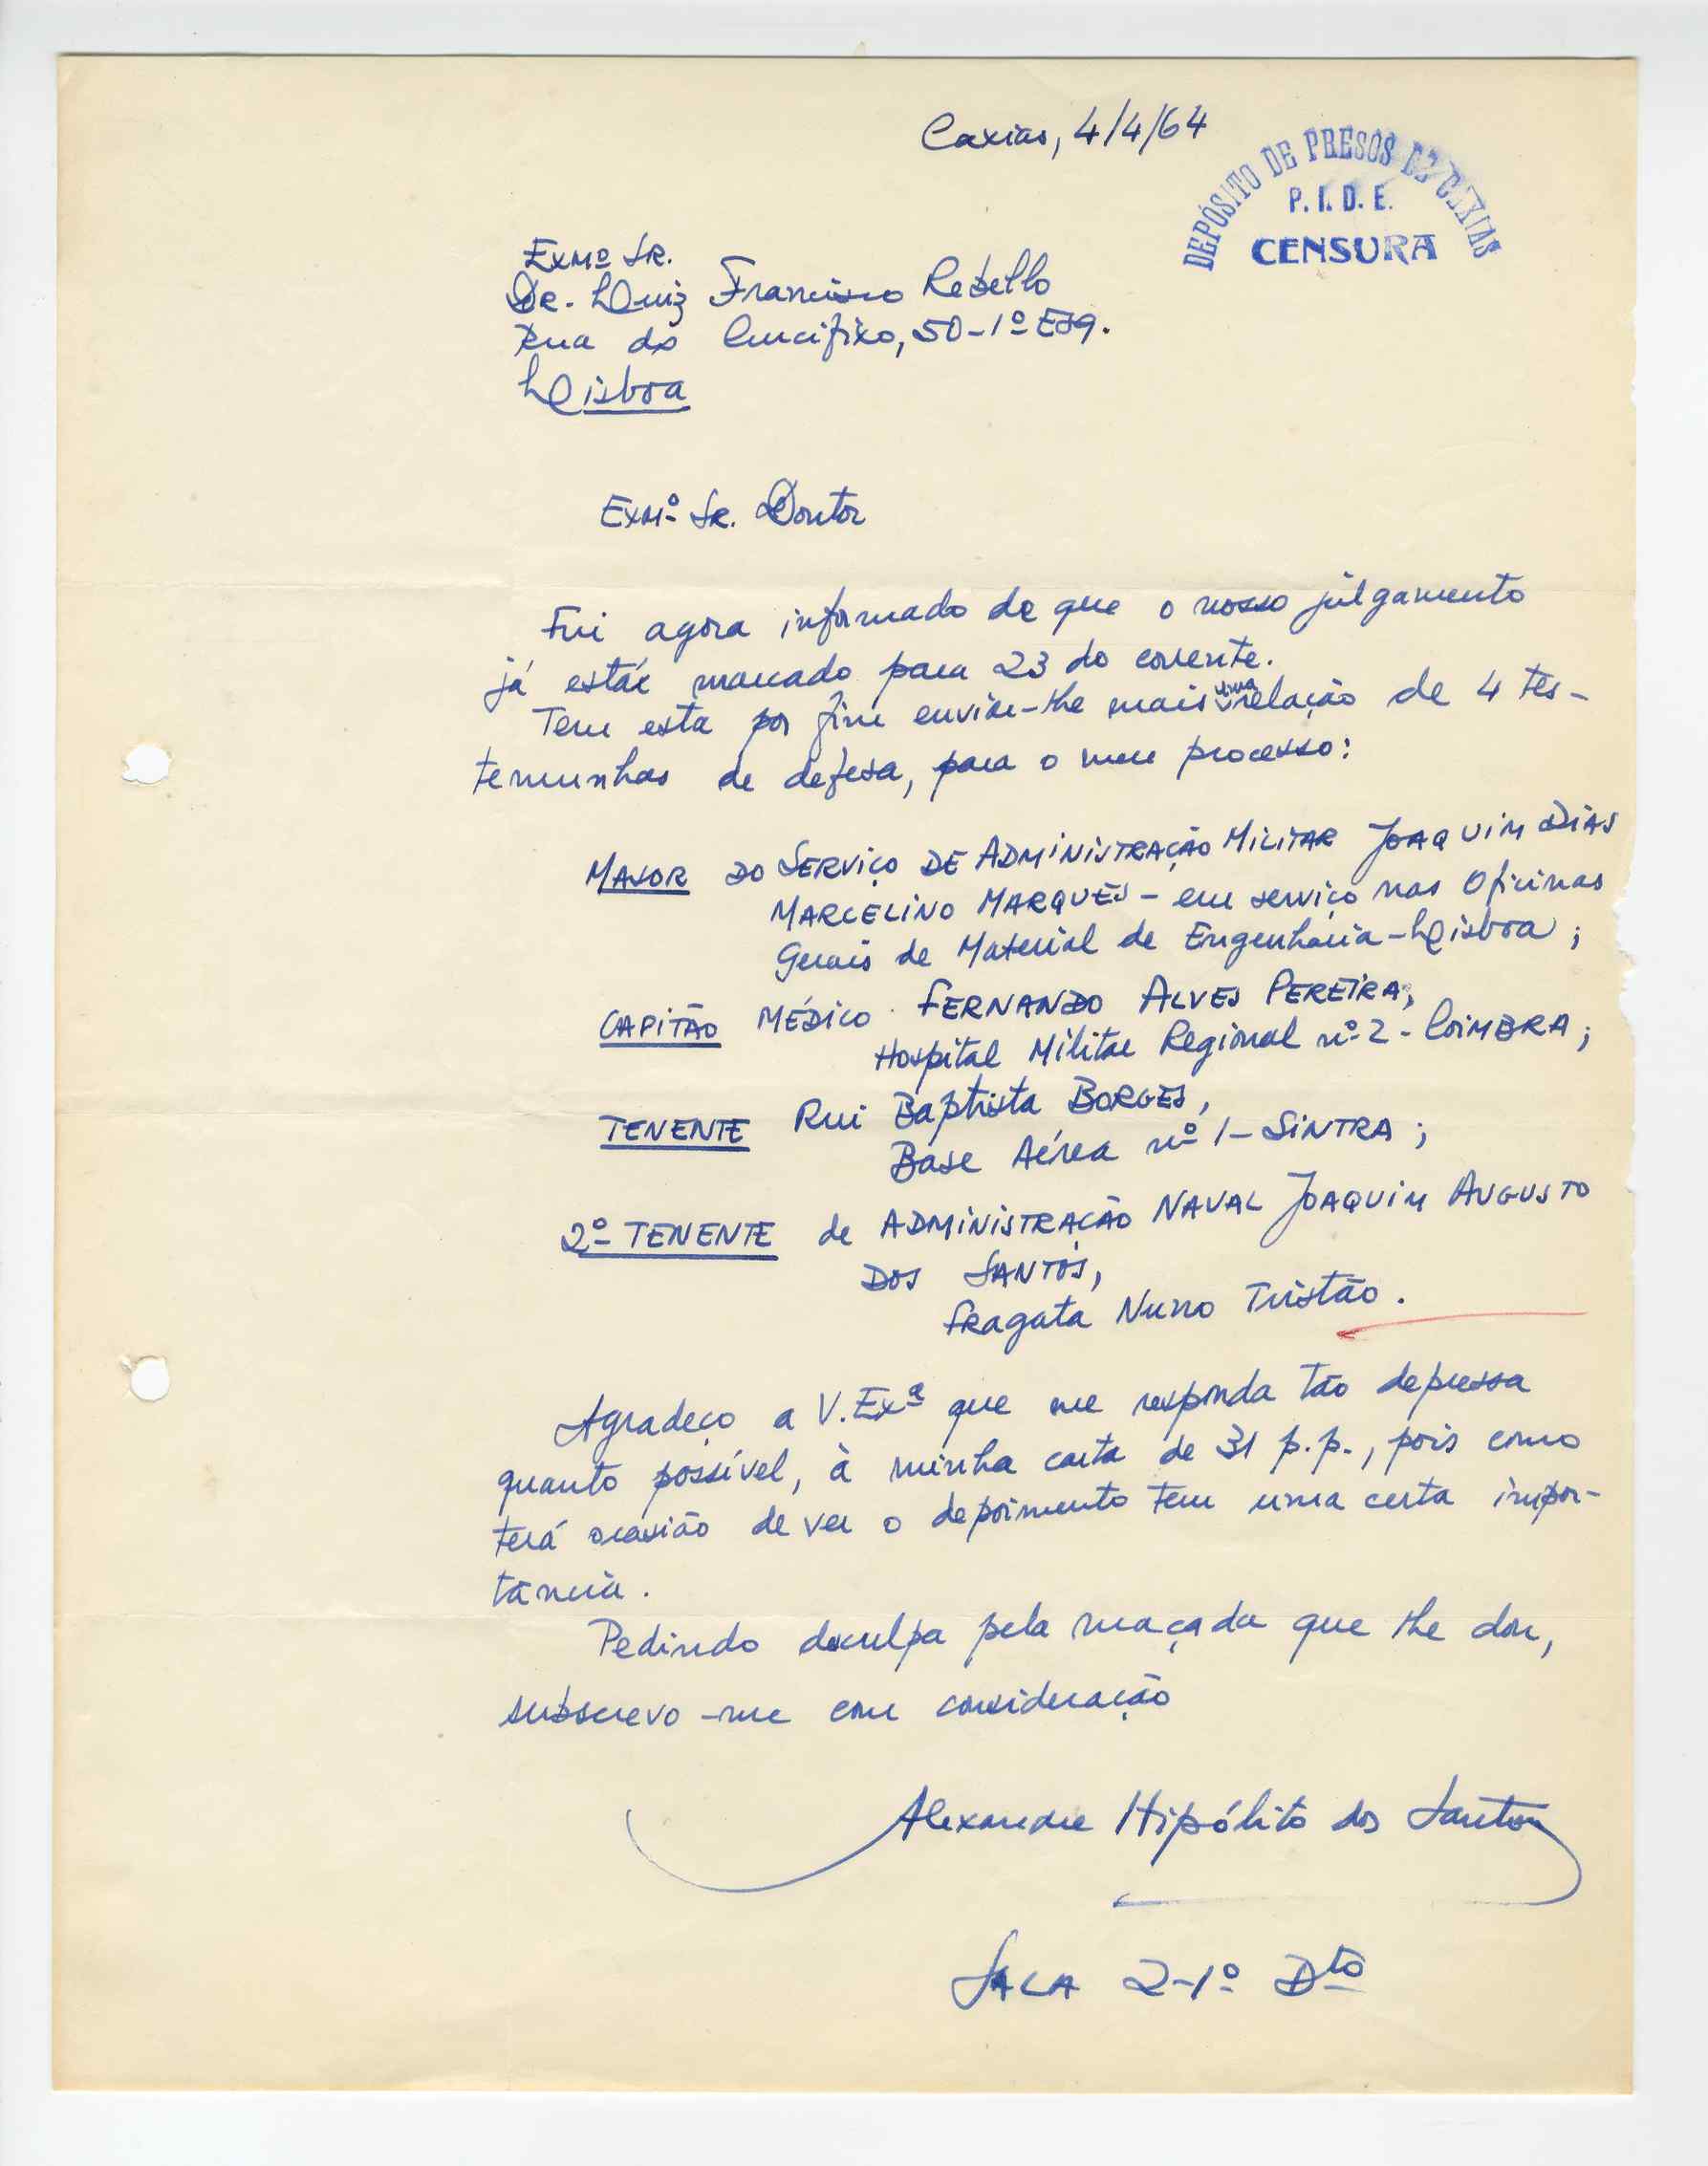 Caxias, 4/4/64
DEPÓSITO DE PRESOS DE CAXIAS
P. I. D. E.
CENSURA
Exmº Sr.
Dr. Luiz Francisco Rebello
Rua do Crucifixo, 50-1º Esq.
Lisboa
Exmº Sr. Doutor
Fui agora informado de que o nosso julgamento
já está marcado para 23 do corrente.
Tem esta por fim enviar-lhe mais uma relação de 4 tes-
temunhas de defesa, para o meu processo:
MAJOR DO SERVIÇO DE ADMINISTRAÇÃO MILITAR JOAQUIM DIAS
MARCELINO MARQUES - em serviço nas Oficinas
Gerais de Material de Engenharia - Lisboa;
CAPITÃO MÉDICO FERNANDO ALVES PEREIRA,
Hospital Militar Regional nº 2 - COIMBRA;
TENENTE Rui Baptista BORGES,
Base Aérea nº 1 - SINTRA;
2º TENENTE de ADMINISTRAÇÃO NAVAL JOAQUIM AUGUSTO
DOS SANTOS,
Fragata Nuno Tristão.
Agradeço a V. Exª que me responda tão depressa
quanto possível, à minha carta de 31 p.p., pois como
terá ocasião de ver o depoimento tem uma certa impor-
tância.
Pedindo desculpa pela maçada que lhe dou,
subscrevo-me com consideração
Alexandre Hipólito dos Santos
SALA 2-1º Dto